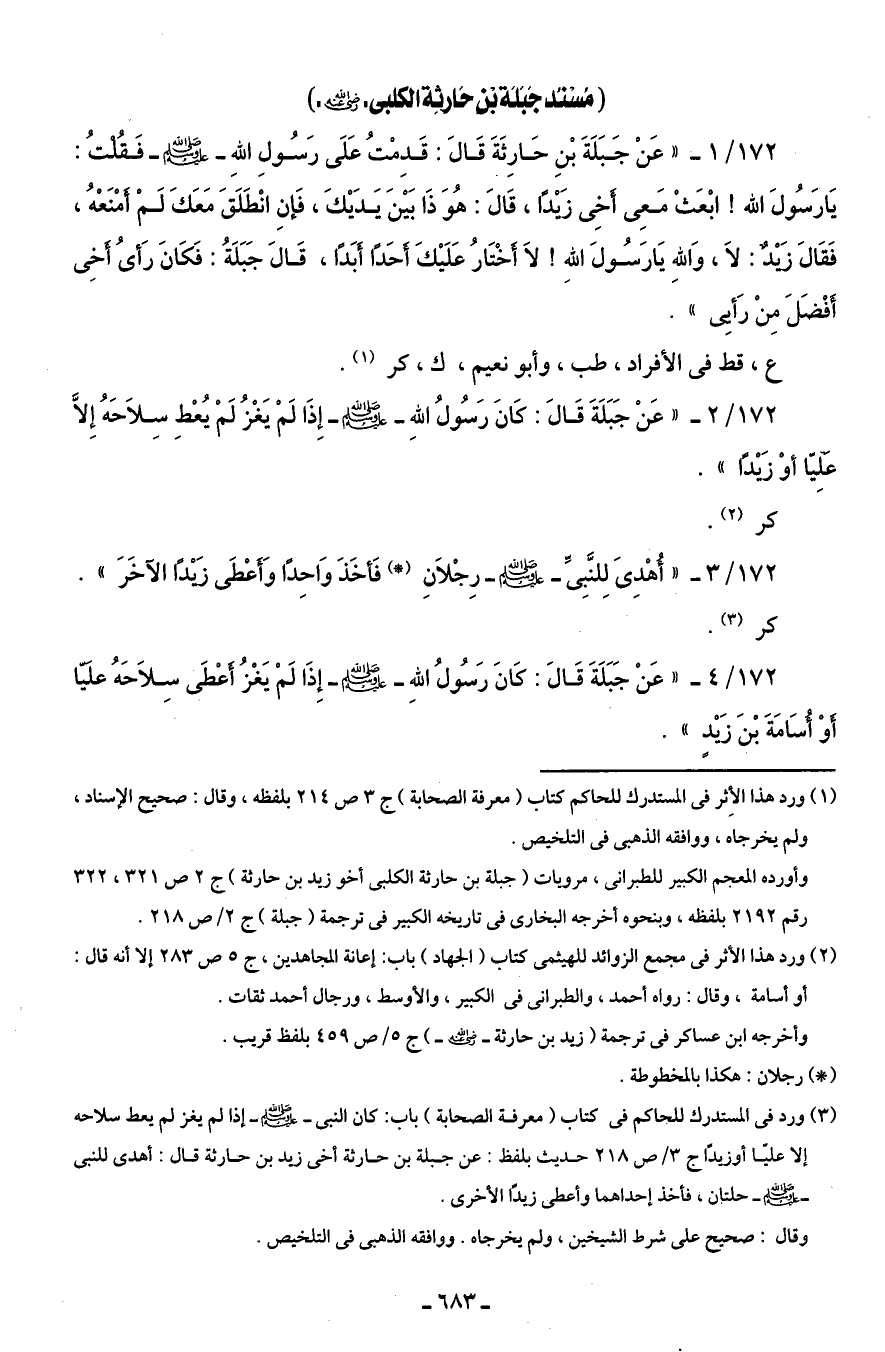 ( مُسْنَد جَبَلَة بْن حَارثِة الكلبى. رضي الله عنه .)
١٧٢/ ١ ـ « عَنْ جَبَلَةَ بْنِ حَارِثَةَ قَالَ : قَدِمْتُ عَلَى رَسُولِ اللهِ ـ ﷺ ـ فَقُلْتُ :
يَارَسُولَ الله ! ابْعَثْ مَعِى أَخِى زَيْدًا ، قَالَ : هُوَ ذَا بَيْنَ يَدَيْكَ ، فَإِن انْطَلَقَ مَعَكَ لَمْ أَمْنَعْهُ ،
فَقَالَ زَيْدٌ : لاَ ، وَاللهِ يَارَسُولَ الله ! لاَ أَخْتَارُ عَلَيْكَ أَحَدًا أَبَدًا ، قَالَ جَبَلَةُ : فَكَانَ رَأىُ أَخِى
أَفْضَلَ مِنْ رَأيِى » .
ع ، قط فى الأفراد ، طب ، وأبو نعيم ، ك ، كر (١) .
١٧٢/ ٢ ـ « عَنْ جَبَلَةَ قَالَ : كَانَ رَسُولُ اللهِ ـ ﷺ ـ إِذَا لَمْ يَغْزُ لَمْ يُعْطِ سِلاَحَهُ إِلاَّ
عَلِيّا أوْ زَيْدًا » .
كر (٢) .
١٧٢/ ٣ ـ « أُهْدِىَ لِلنَّبِىِّ ـ ﷺ ـ رِجْلاَنِ (*) فَأخَذَ وَاحِدًا وَأَعْطَى زَيْدًا الآخَرَ » .
كر (٣) .
١٧٢/ ٤ ـ « عَنْ جَبَلَةَ قَالَ : كَانَ رَسُولُ اللهِ ـ ﷺ ـ إِذَا لَمْ يَغْزُ أَعْطَى سِلاَحَهُ علَيّا
أَوْ أُسَامَةَ بْنَ زَيْدٍ » .
(١) ورد هذا الأثر فى المستدرك للحاكم كتاب ( معرفة الصحابة ) ج ٣ ص ٢١٤ بلفظه ، وقال : صحيح الإسناد ،
ولم يخرجاه ، ووافقه الذهبى فى التلخيص .
وأورده المعجم الكبير للطبرانى ، مرويات ( جبلة بن حارثة الكلبى أخو زيد بن حارثة ) ج ٢ ص ٣٢١ ، ٣٢٢
رقم ٢١٩٢ بلفظه ، وبنحوه أخرجه البخارى فى تاريخه الكبير فى ترجمة ( جبلة ) ج ٢/ ص ٢١٨ .
(٢) ورد هذا الأثر فى مجمع الزوائد للهيثمى كتاب ( الجهاد ) باب: إعانة المجاهدين ، ج ٥ ص ٢٨٣ إلا أنه قال :
أو أسامة ، وقال : رواه أحمد ، والطبرانى فى الكبير ، والأوسط ، ورجال أحمد ثقات .
وأخرجه ابن عساكر فى ترجمة ( زيد بن حارثة ـ رضي الله عنه ـ ) ج ٥/ ص ٤٥٩ بلفظ قريب .
(*) رجلان : هكذا بالمخطوطة .
(٣) ورد فى المستدرك للحاكم فى كتاب ( معرفة الصحابة ) باب: كان النبى ـ ﷺ ـ إذا لم يغز لم يعط سلاحه
إلا عليّا أوزيدًا ج ٣/ ص ٢١٨ حديث بلفظ : عن جبلة بن حارثة أخى زيد بن حارثة قال : أهدى للنبى
ـ ﷺ ـ حلتان ، فأخذ إحداهما وأعطى زيدًا الأخرى .
وقال : صحيح على شرط الشيخين ، ولم يخرجاه . ووافقه الذهبى فى التلخيص .
ـ ٦٨٣ ـ